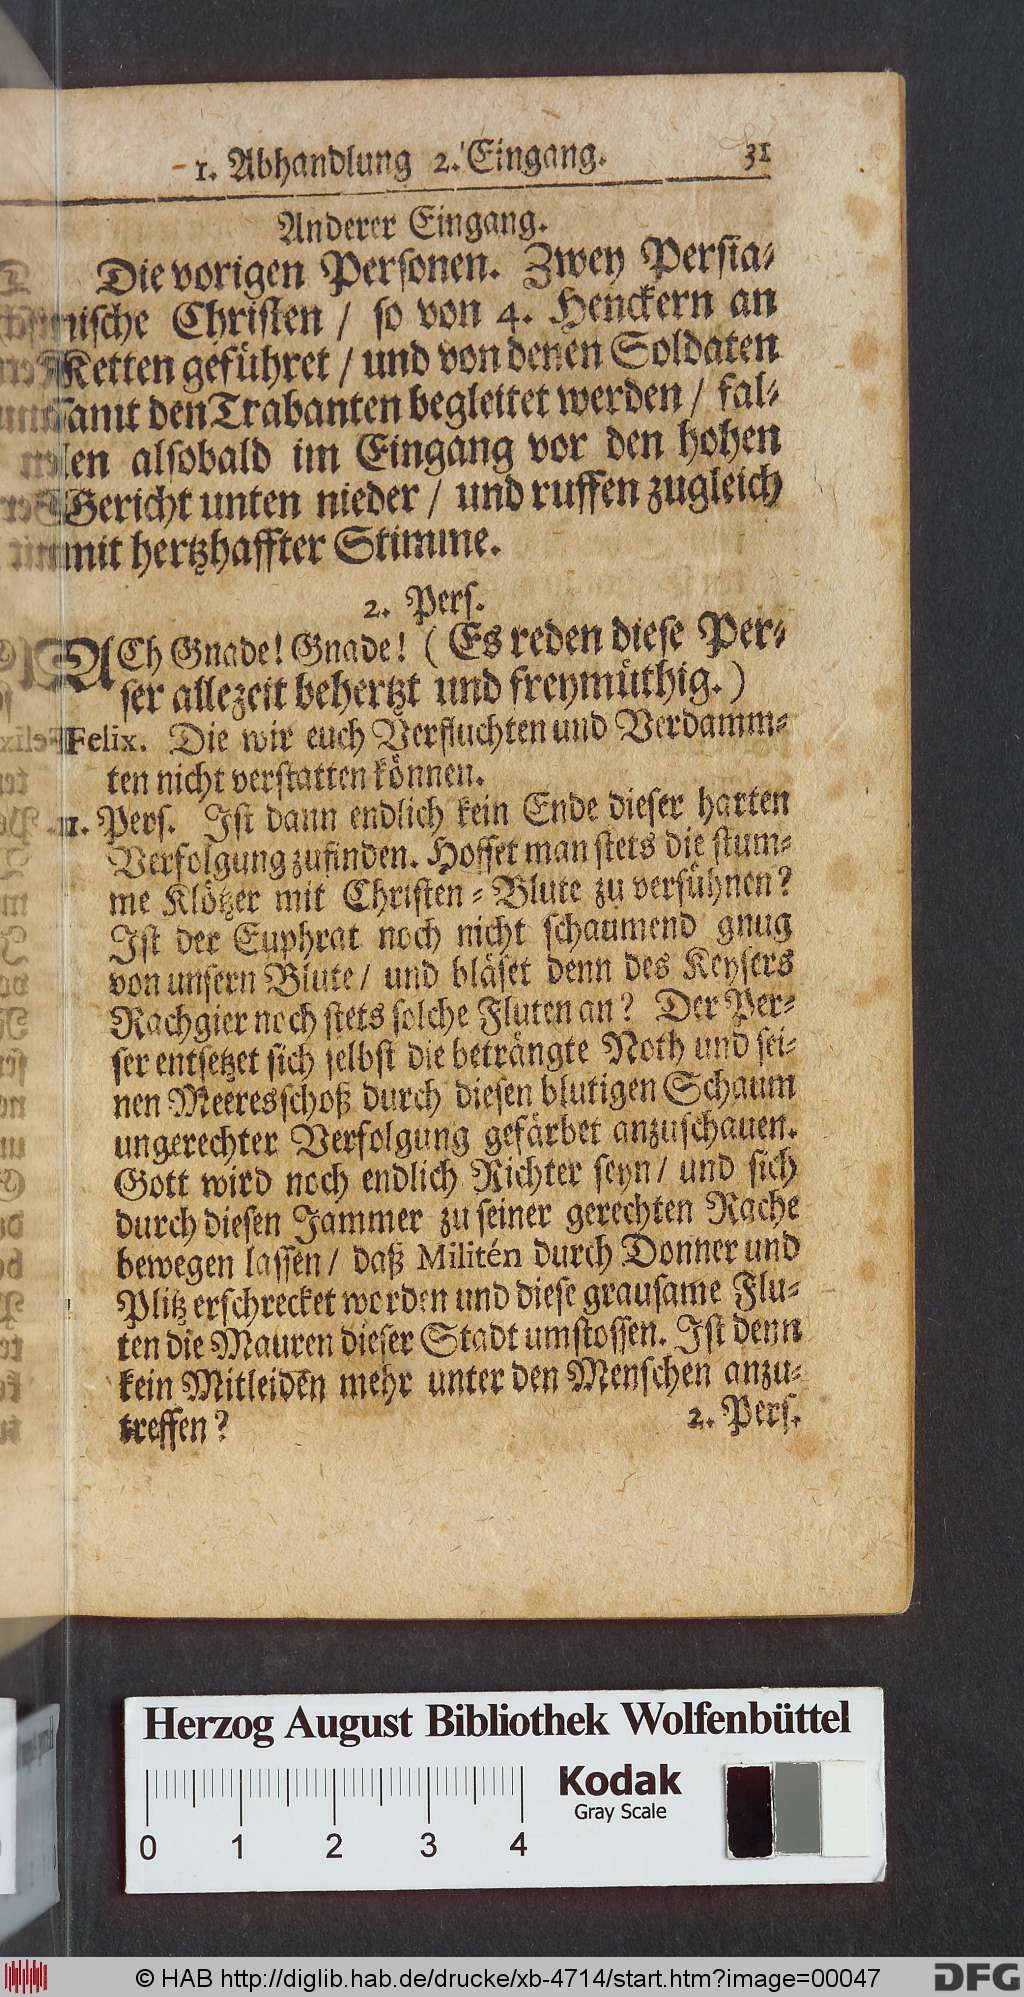 1. Abhandlung 2. Eingang. 31
Anderer Eingang.
Die vorigen Personen. Zwey Persia-
nische Christen / so von 4. Henckern an
Ketten geführet / und von denen Soldaten
samt den Trabanten begleitet werden / fal-
len alsobald im Eingang vor den hohen
Gericht unten nieder / und ruffen zugleich
mit hertzhaffter Stimme.
2. Pers.
ACh Gnade! Gnade! (Es reden diese Per-
ser allezeit behertzt und freymüthig.)
Felix. Die wir euch Verfluchten und Verdamm-
ten nicht verstatten können.
1. Pers. Ist dann endlich kein Ende dieser harten
Verfolgung zufinden. Hoffet man stets die stum-
me Klötzer mit Christen-Blute zu versühnen?
Ist der Euphrat noch nicht schaumend gnug
von unsern Blute / und bläset denn des Keysers
Rachgier noch stets solche Fluten an? Der Per-
ser entsetzet sich selbst die beträngte Noth und sei-
nen Meeresschoß durch diesen blutigen Schaum
ungerechter Verfolgung gefärbet anzuschauen.
Gott wird noch endlich Richter seyn / und sich
durch diesen Jammer zu seiner gerechten Rache
bewegen lassen / daß Militén durch Donner und
Plitz erschrecket worden und diese grausame Flu-
ten die Mauren dieser Stadt umstossen. Ist denn
kein Mitleiden mehr unter den Menschen anzu-
treffen? 2. Pers.
Herzog August Bibliothek Wolfenbüttel
Kodak
Gray Scale
0 1 2 3 4
© HAB http://diglib.hab.de/drucke/xb-4714/start.htm?image=00047 DFG